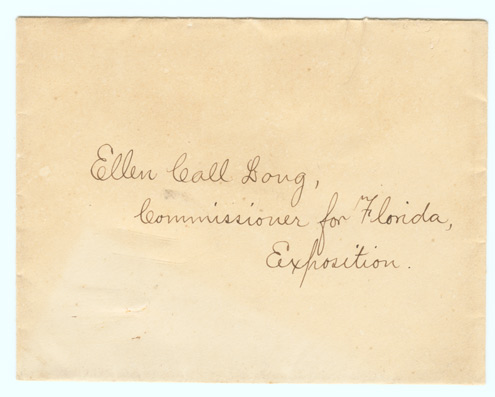 Ellen Call Long,
Commissioner for Florida,
Exposition.